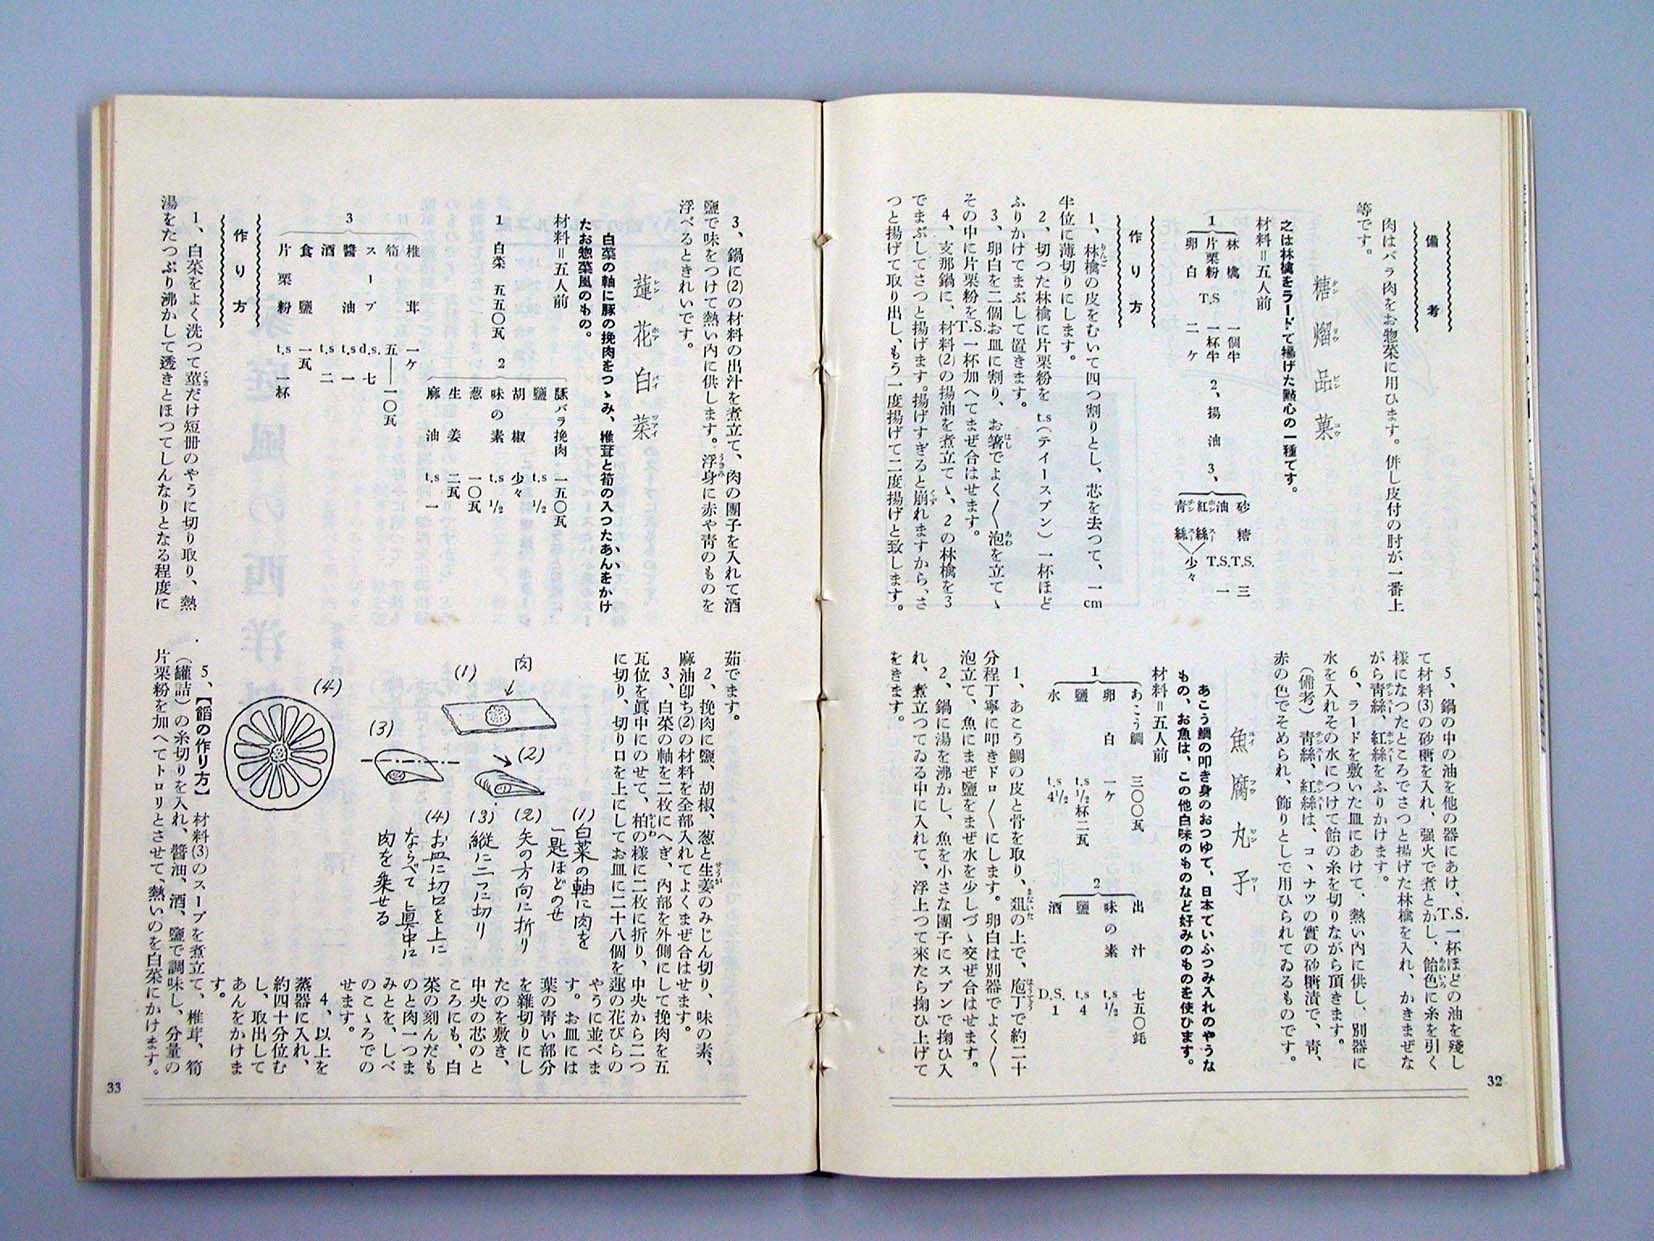 備考
肉はバラ肉をお惣菜に用ひます。併し皮付の肘が一番上
等です。
糖熘品菓
之は林檎をラードで揚げた點心の一種です。
材料＝五人前
1
林檎 一個半
片栗粉 T.S 一杯半
卵白 二ケ
2、揚油
3、
砂糖 T.S. 三
油 T.S. 一
紅絲
青絲
少々
作り方
1、林檎の皮をむいて四つ割りとし、芯を去つて、一cm
半位に薄切りにします。
2、切つた林檎に片栗粉を t.s(テイースプン) 一杯ほど
ふりかけてまぶして置きます。
3、卵白を二個お皿に割り、お箸でよく〱泡を立てゝ
その中に片栗粉をT.S.一杯加へてまぜ合はせます。
4、支那鍋に、材料(2)の揚油を煮立てゝ、2の林檎を3
でまぶしてさつと揚げます。揚げすぎると崩れますから、さ
つと揚げて取り出し、もう一度揚げて二度揚げと致します。
5、鍋の中の油を他の器にあけ、T.S.一杯ほどの油を殘し
て材料(3)の砂糖を入れ、强火で煮とかし、飴色に糸を引く
樣になつたところでさつと揚げた林檎を入れ、かきまぜな
がら青絲、紅絲をふりかけます。
6、ラードを敷いた皿にあけて、熱い内に供し、別器に
水を入れその水につけて飴の糸を切りながら頂きます。
(備考) 青絲、紅絲は、コヽナツの實の砂糖漬で、靑、
赤の色でそめられ、飾りとして用ひられてゐるものです。
魚腐丸子
あこう鯛の叩き身のおつゆで、日本でいふつみ入れのやうな
もの、お魚は、この他白味のものなど好みのものを使ひます。
材料＝五人前
1
あこう鯛 三〇〇瓦
卵白 一ケ
鹽 t.s ½杯二瓦
水 t.s 4½
2
出汁 七五〇竓
味の素 t.s ½
鹽 t.s 4
酒 D.S. 1
1、あこう鯛の皮と骨を取り、俎の上で、庖丁で約二十
分程丁寧に叩きドロ〱にします。卵白は別器でよく〱
泡立て、魚にまぜ鹽をまぜ水を少しづゝ交ぜ合はせます。
2、鍋に湯を沸かし、魚を小さな團子にスプンで掬ひ入
れ、煮立つてゐる中に入れて、浮上つて來たら掬ひ上げて
をきます。
32
3、鍋に(2)の材料の出汁を煮立て、肉の團子を入れて酒
鹽で味をつけて熱い内に供します。浮身に赤や青のものを
浮べるときれいです。
蓮花白菜
白菜の軸に豚の挽肉をつゝみ、椎茸と筍の入つたあんをかけ
たお惣菜風のもの。
材料＝五人前
1 白菜 五五〇瓦
2
豚バラ挽肉 一五〇瓦
鹽 t.s ½
胡椒 少々
味の素 t.s ½
葱 一〇瓦
生姜 二瓦
麻油 t.s 一
3
椎茸 一ケ
筍 五—一〇瓦
スープ d.s. 七
醬油 t.s 一
酒 t.s 二
食鹽 一瓦
片栗粉 t.s 一杯
作り方
1、白菜をよく洗つて莖だけ短冊のやうに切り取り、熱
湯をたつぷり沸かして透きとほつてしんなりとなる程度に
茹でます。
2、挽肉に鹽、胡椒、葱と生姜のみじん切り、味の素、
麻油卽ち(2)の材料を全部入れてよくまぜ合はせます。
3、白菜の軸を二枚にへぎ、内部を外側にして挽肉を五
瓦位を眞中にのせて、柏の樣に二枚に折り、中央から二つ
に切り、切り口を上にしてお皿に二十八個を蓮の花びらの
やうに並べま
す。お皿には
葉の青い部分
を雜切りにし
たのを敷き、
中央の芯のと
ころにも、白
菜の刻んだも
のと肉一つま
みとを、しべ
のこゝろでの
せます。
4、以上を
蒸器に入れ、
約四十分位む
し、取出して
あんをかけま
す。
肉
(1)
(2)
(3)
(4)
(1)白菜の軸に肉を
一匙ほどのせ
(2)矢の方向に折り
(3)縱に二つに切り
(4)お皿に切口を上に
ならべて眞中に
肉を乘せる
5、【餡の作り方】材料(3)のスープを煮立て、椎茸、筍
(罐詰)の糸切りを入れ、醬油、酒、鹽で調味し、分量の
片栗粉を加へてトロリとさせて、熱いのを白菜にかけます。
33